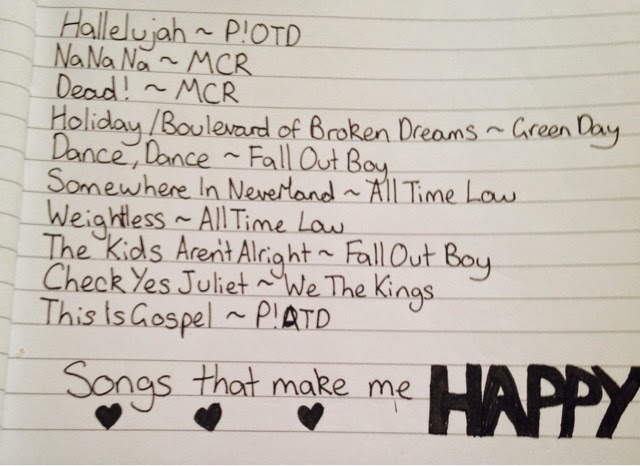 Hallelujah ~ P!OTD
NaNaNa ~ MCR
Dead! ~ MCR
Holiday/Boulevard of Broken Dreams ~ Green Day
Dance, Dance ~ Fall Out Boy
Somewhere In Neverland ~ All Time Low
Weightless ~ All Time Low
The Kids Aren't Alright ~ Fall Out Boy
Check Yes Juliet ~ We The Kings
This Is Gospel ~ P!ATD
Songs that make me HAPPY